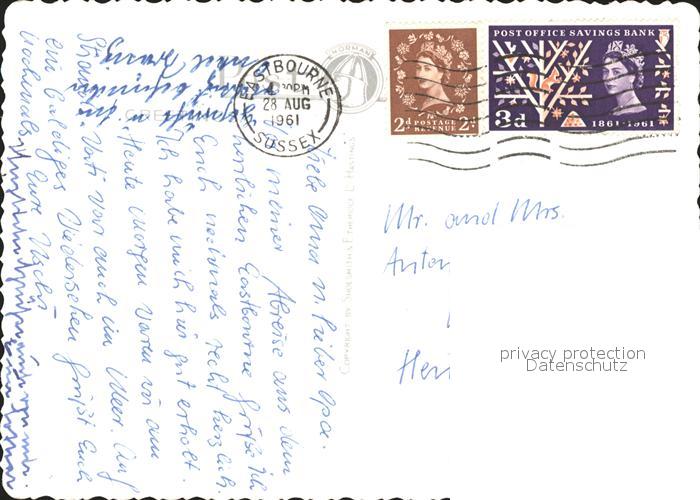 POST OFFICE SAVINGS BANK
3d
1861-1961
2d POSTAGE REVENUE 2d
EASTBOURNE
PM
28 AUG
1961
SUSSEX
NORMAN
COPYRIGHT BY SHOESMITH & ETHERIDGE L HASTINGS
Mr. and Mrs.
Anton
privacy protection
Datenschutz
Liebe Oma u. lieber Opa.
meiner Abreise aus dem
herrlichen Eastbourne grüße ich
Euch nochmals recht herzlich.
Ich habe mich hier gut erholt.
Heute morgen waren wir am
Strand. Vati war auch im Meer. Auf
ein baldiges Wiedersehen grüßt Euch
nochmals Eure